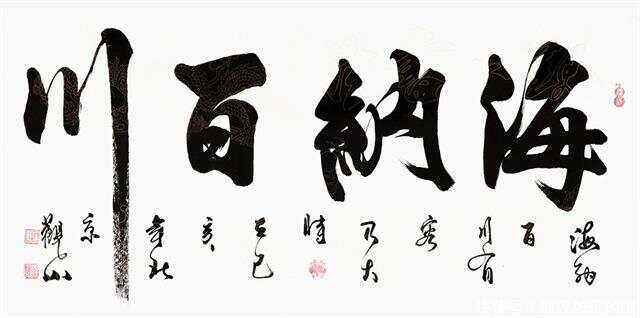 海納百川
海納
百
川有
容
乃大
時
在己
亥
年秋
京
觀山